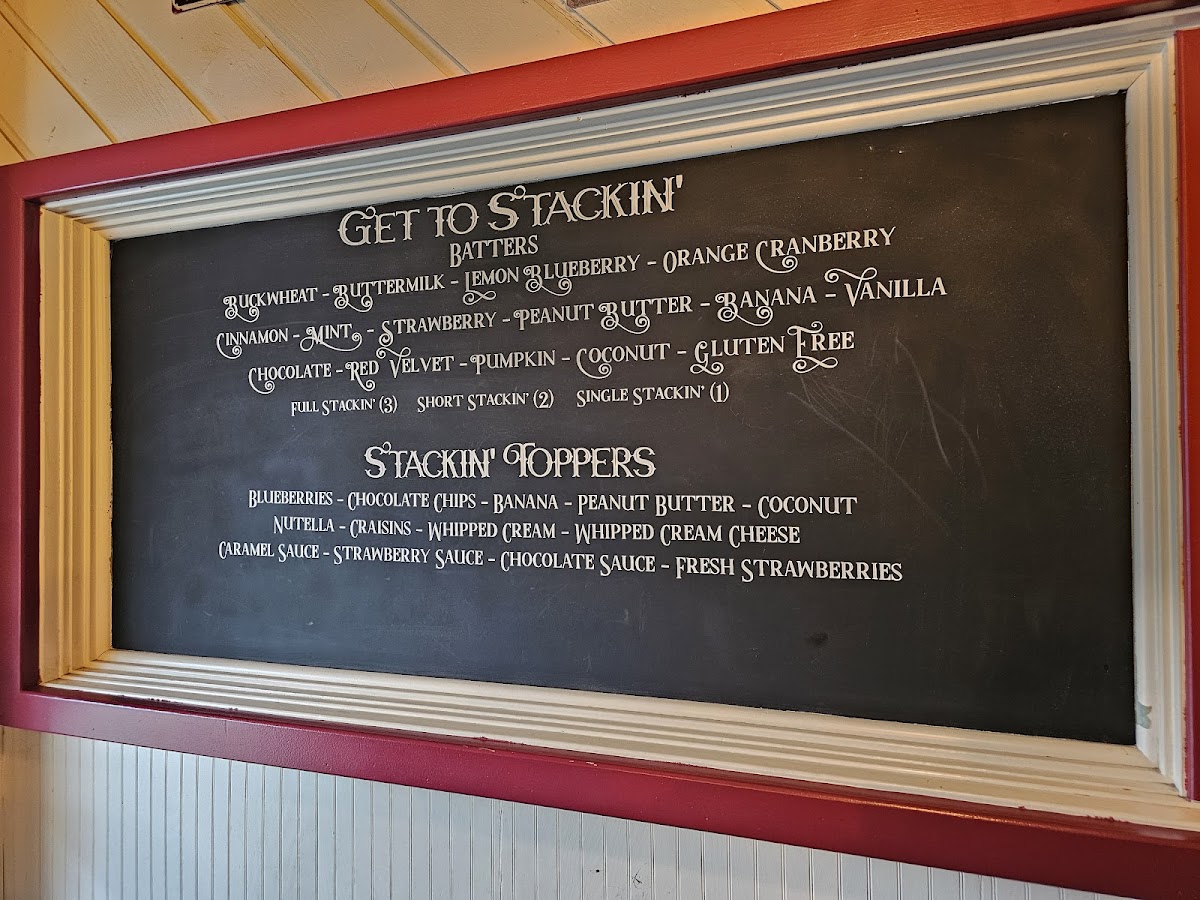 Get to Stackin'
Batters
Buckwheat - Buttermilk - Lemon Blueberry - Orange Cranberry
Cinnamon - Mint - Strawberry - Peanut Butter - Banana - Vanilla
Chocolate - Red Velvet - Pumpkin - Coconut - Gluten Free
Full Stackin' (3) Short Stackin' (2) Single Stackin' (1)
Stackin' Toppers
Blueberries - Chocolate Chips - Banana - Peanut Butter - Coconut
Nutella - Craisins - Whipped Cream - Whipped Cream Cheese
Caramel Sauce - Strawberry Sauce - Chocolate Sauce - Fresh Strawberries